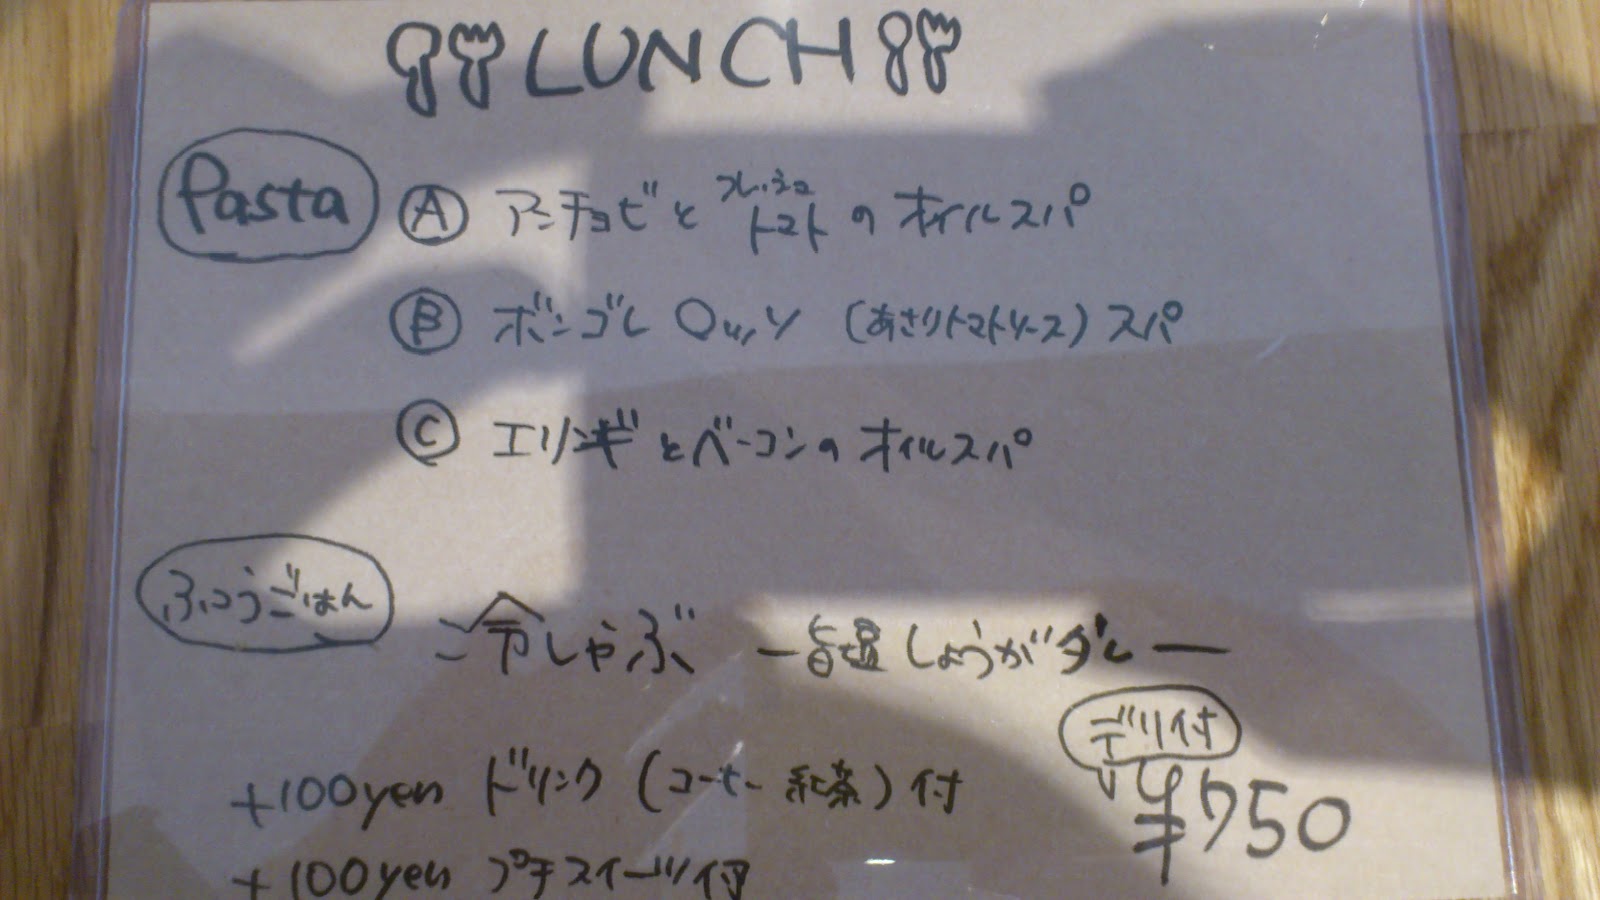 LUNCH
Pasta Ⓐ アンチョビとフレッシュトマトのオイルスパ
Ⓑ ボンゴレロッソ (あさりトマトソース) スパ
Ⓒ エリンギとベーコンのオイルスパ
ふつうごはん 冷しゃぶ ー旨塩しょうがダレー
デリ付
+100yen ドリンク (コーヒー 紅茶) 付 ¥750
+100yen プチスイーツ付